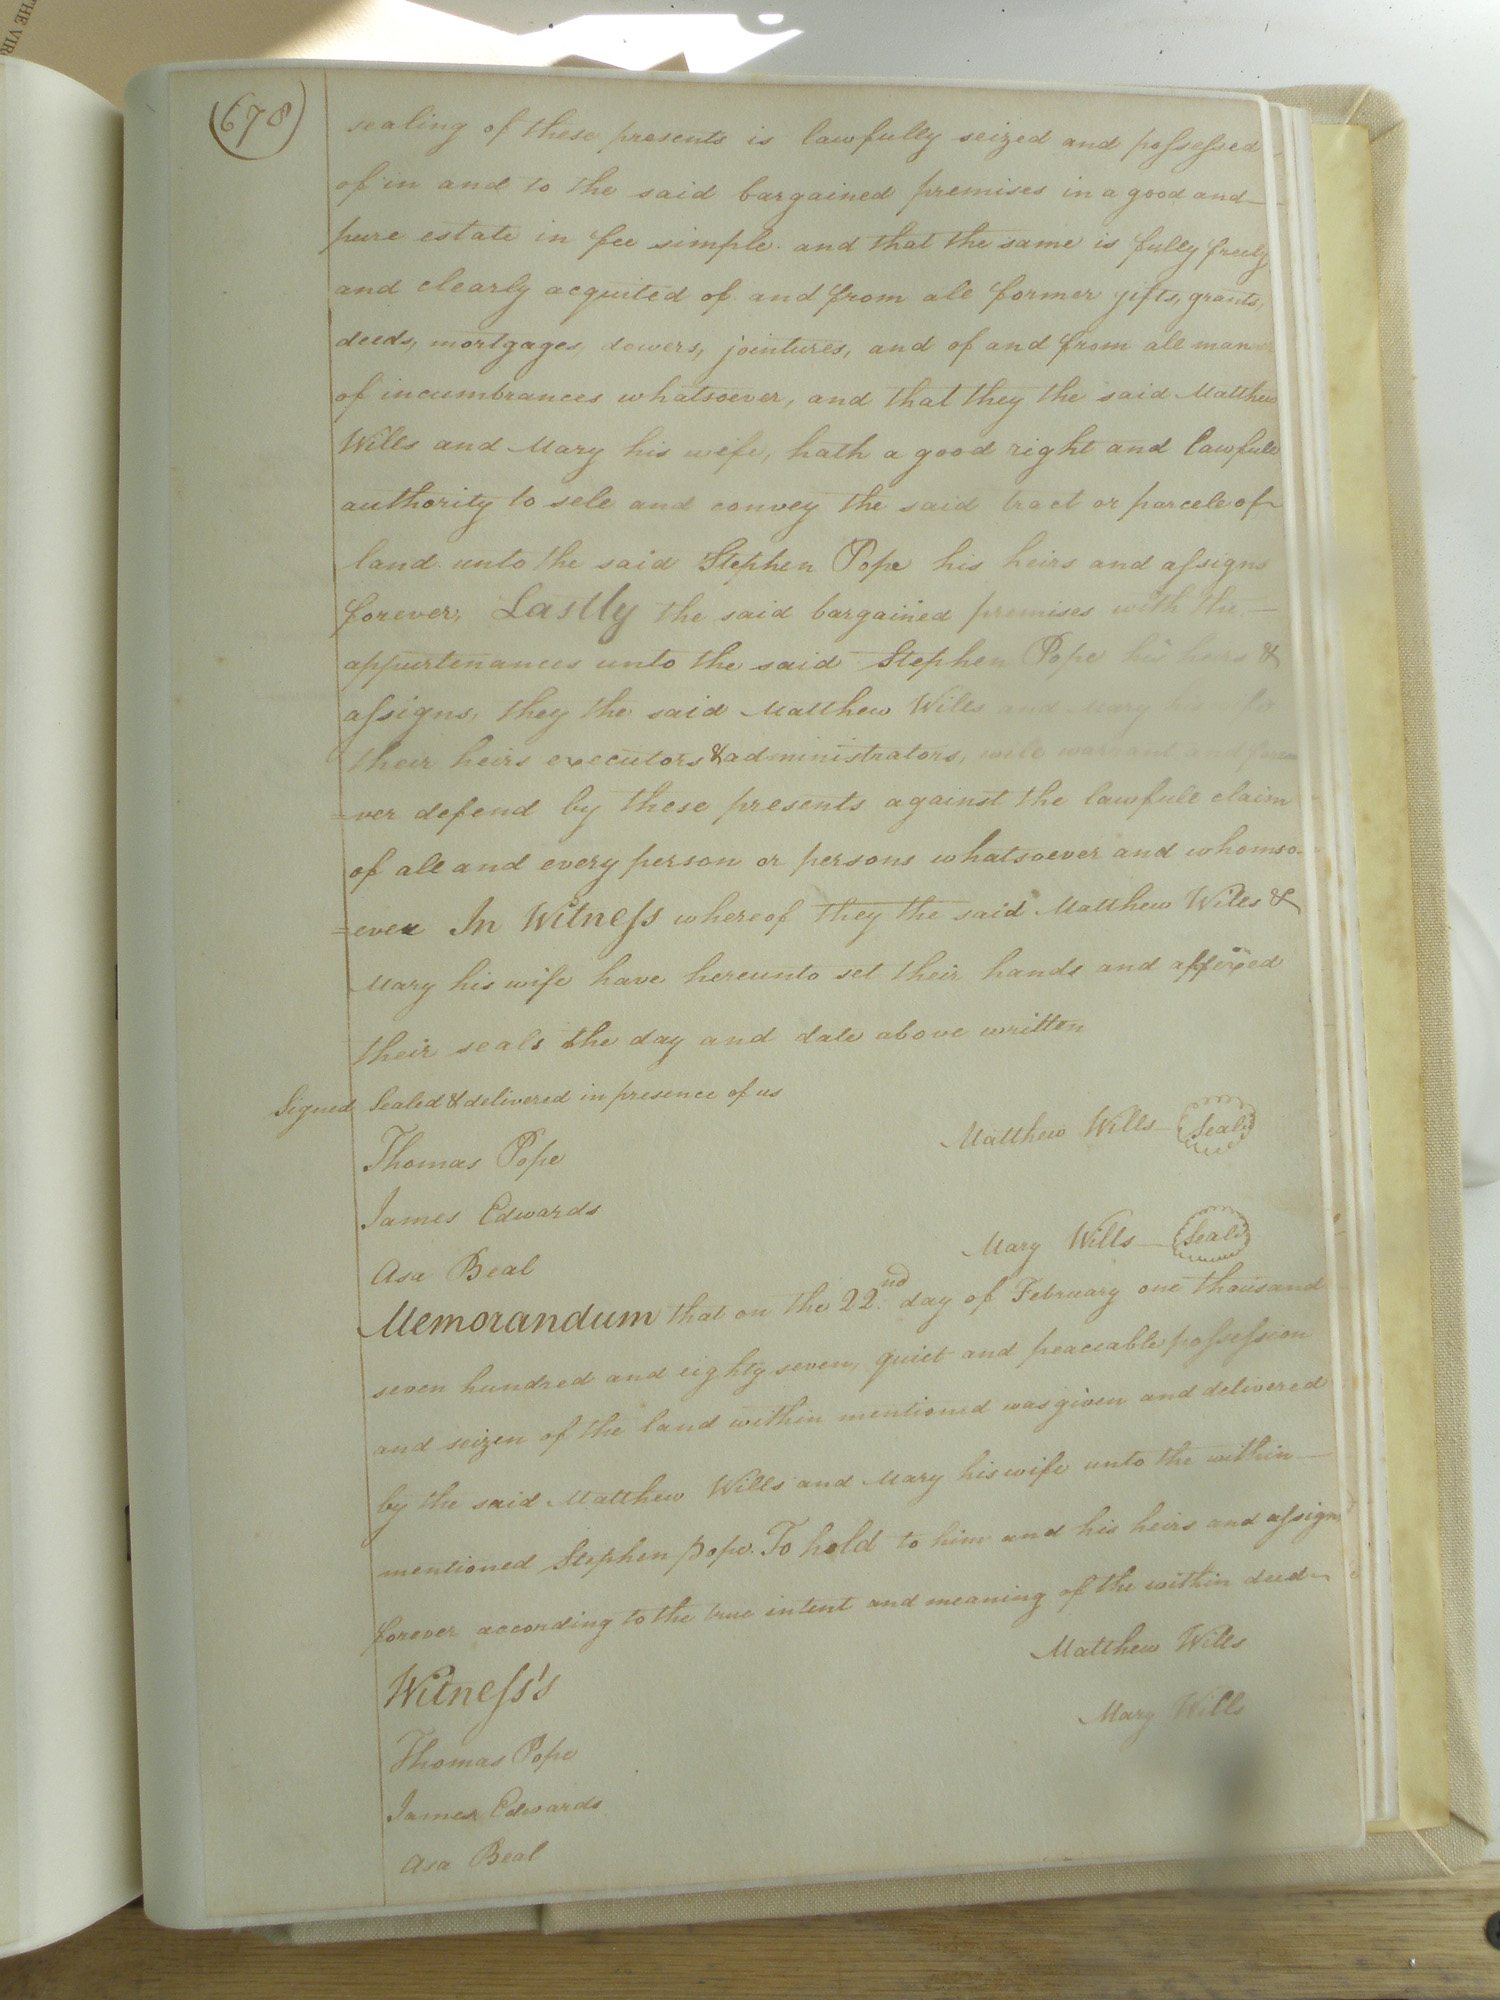 THE VIR
(678)
sealing of these presents is lawfully seized and possessed
of in and to the said bargained premises in a good and
pure estate in fee simple. and that the same is fully freely
and clearly acquited of and from all former gifts, grants,
deeds, mortgages, dowers, jointures, and of and from all manner
of incumbrances whatsoever, and that they the said Matthew
Wills and Mary his wife, hath a good right and lawfull
authority to sell and convey the said tract or parcell of
land unto the said Stephen Pope his heirs and assigns
forever, Lastly the said bargained premises with the
appurtenances unto the said Stephen Pope his heirs &
assigns, they the said Matthew Wills and Mary his
their heirs executors & administrators, will warrant and fore
=ver defend by these presents against the lawfull claim
of all and every person or persons whatsoever and whomso-
=ever In Witness whereof they the said Matthew Wills &
Mary his wife have hereunto set their hands and affixed
their seals the day and date above written
Signed Sealed & delivered in presence of us
Matthew Wills Seal
Thomas Pope
James Edwards
Mary Wills Seal
Asa Beal
Memorandum that on the 22nd day of February one thousand
seven hundred and eighty seven, quiet and peaceable possession
and seizen of the land within mentioned was given and delivered
by the said Matthew Wills and Mary his wife unto the within
mentioned Stephen pope. To hold to him and his heirs and assigns
forever according to the true intent and meaning of the within deed
Matthew Wills
Witness's
Mary Wills
Thomas Pope
James Edwards
Asa Beal